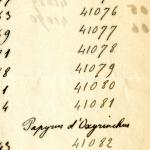 41076
41077
3 41078
41079
8 41080
1 41081
4
Papyrus d'Oxyrinchus
41082